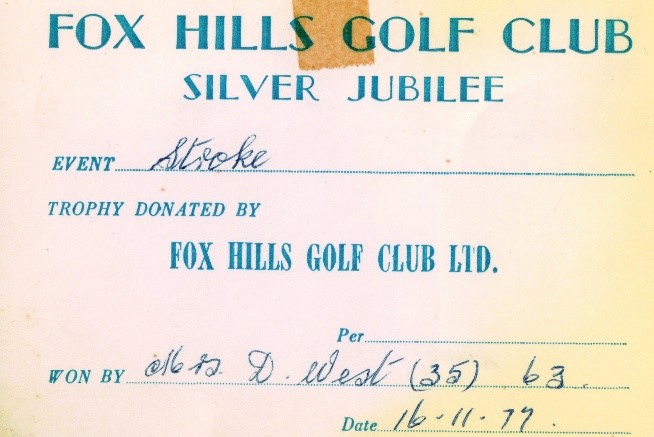 FOX HILLS GOLF CLUB
SILVER JUBILEE
EVENT Stroke
TROPHY DONATED BY
FOX HILLS GOLF CLUB LTD.
Per
WON BY Mrs. D. West (35) 63.
Date 16-11-77.